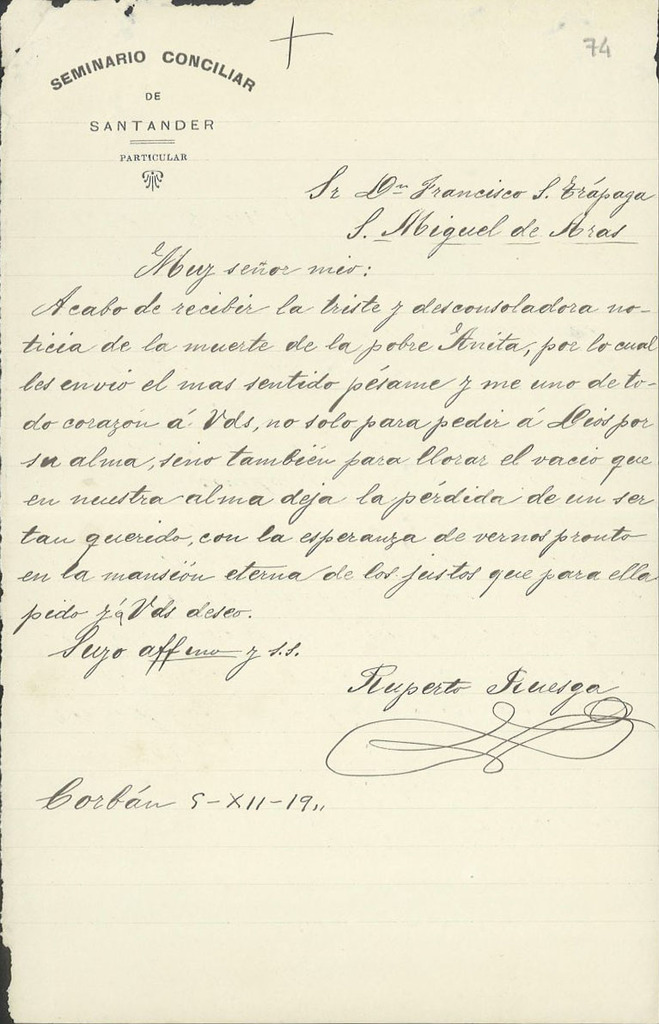 74
SEMINARIO CONCILIAR
DE
SANTANDER
PARTICULAR
Sr Dn Francisco S. Trápaga
S. Miguel de Aras
Muy señor mio:
Acabo de recibir la triste y desconsoladora no-
ticia de la muerte de la pobre Anita, por lo cual
les envio el mas sentido pésame y me uno de to-
do corazón á Vds, no solo para pedir á Dios por
su alma, sino también para llorar el vacio que
en nuestra alma deja la pérdida de un ser
tan querido, con la esperanza de vernos pronto
en la mansión eterna de los justos que para ella
pido y á Vds deseo.
Suyo affmo y s.s.
Ruperto Ruesga
Corbán 5-XII-1911